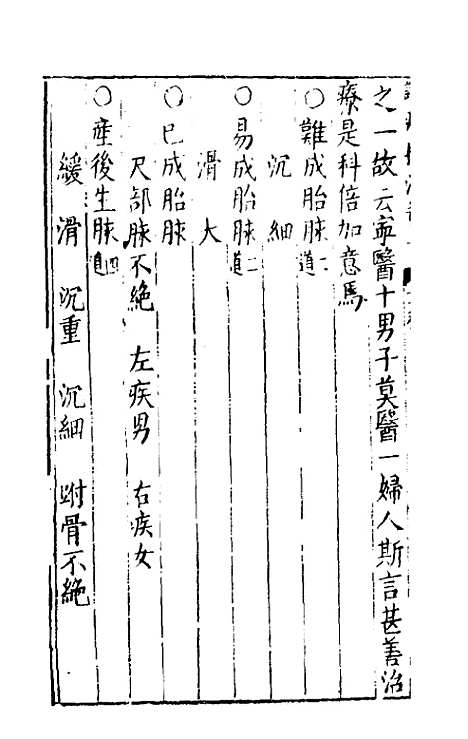 之一故云寜醫十男子莫醫一婦人斯言甚善治
療是科倍加意焉
○難成胎脉二道
沉細
○易成胎脉二道
滑大
○已成胎脉
尺部脉不絶 左疾男 右疾女
○產後生脉四道
緩滑 沉重 沉細 附骨不絶